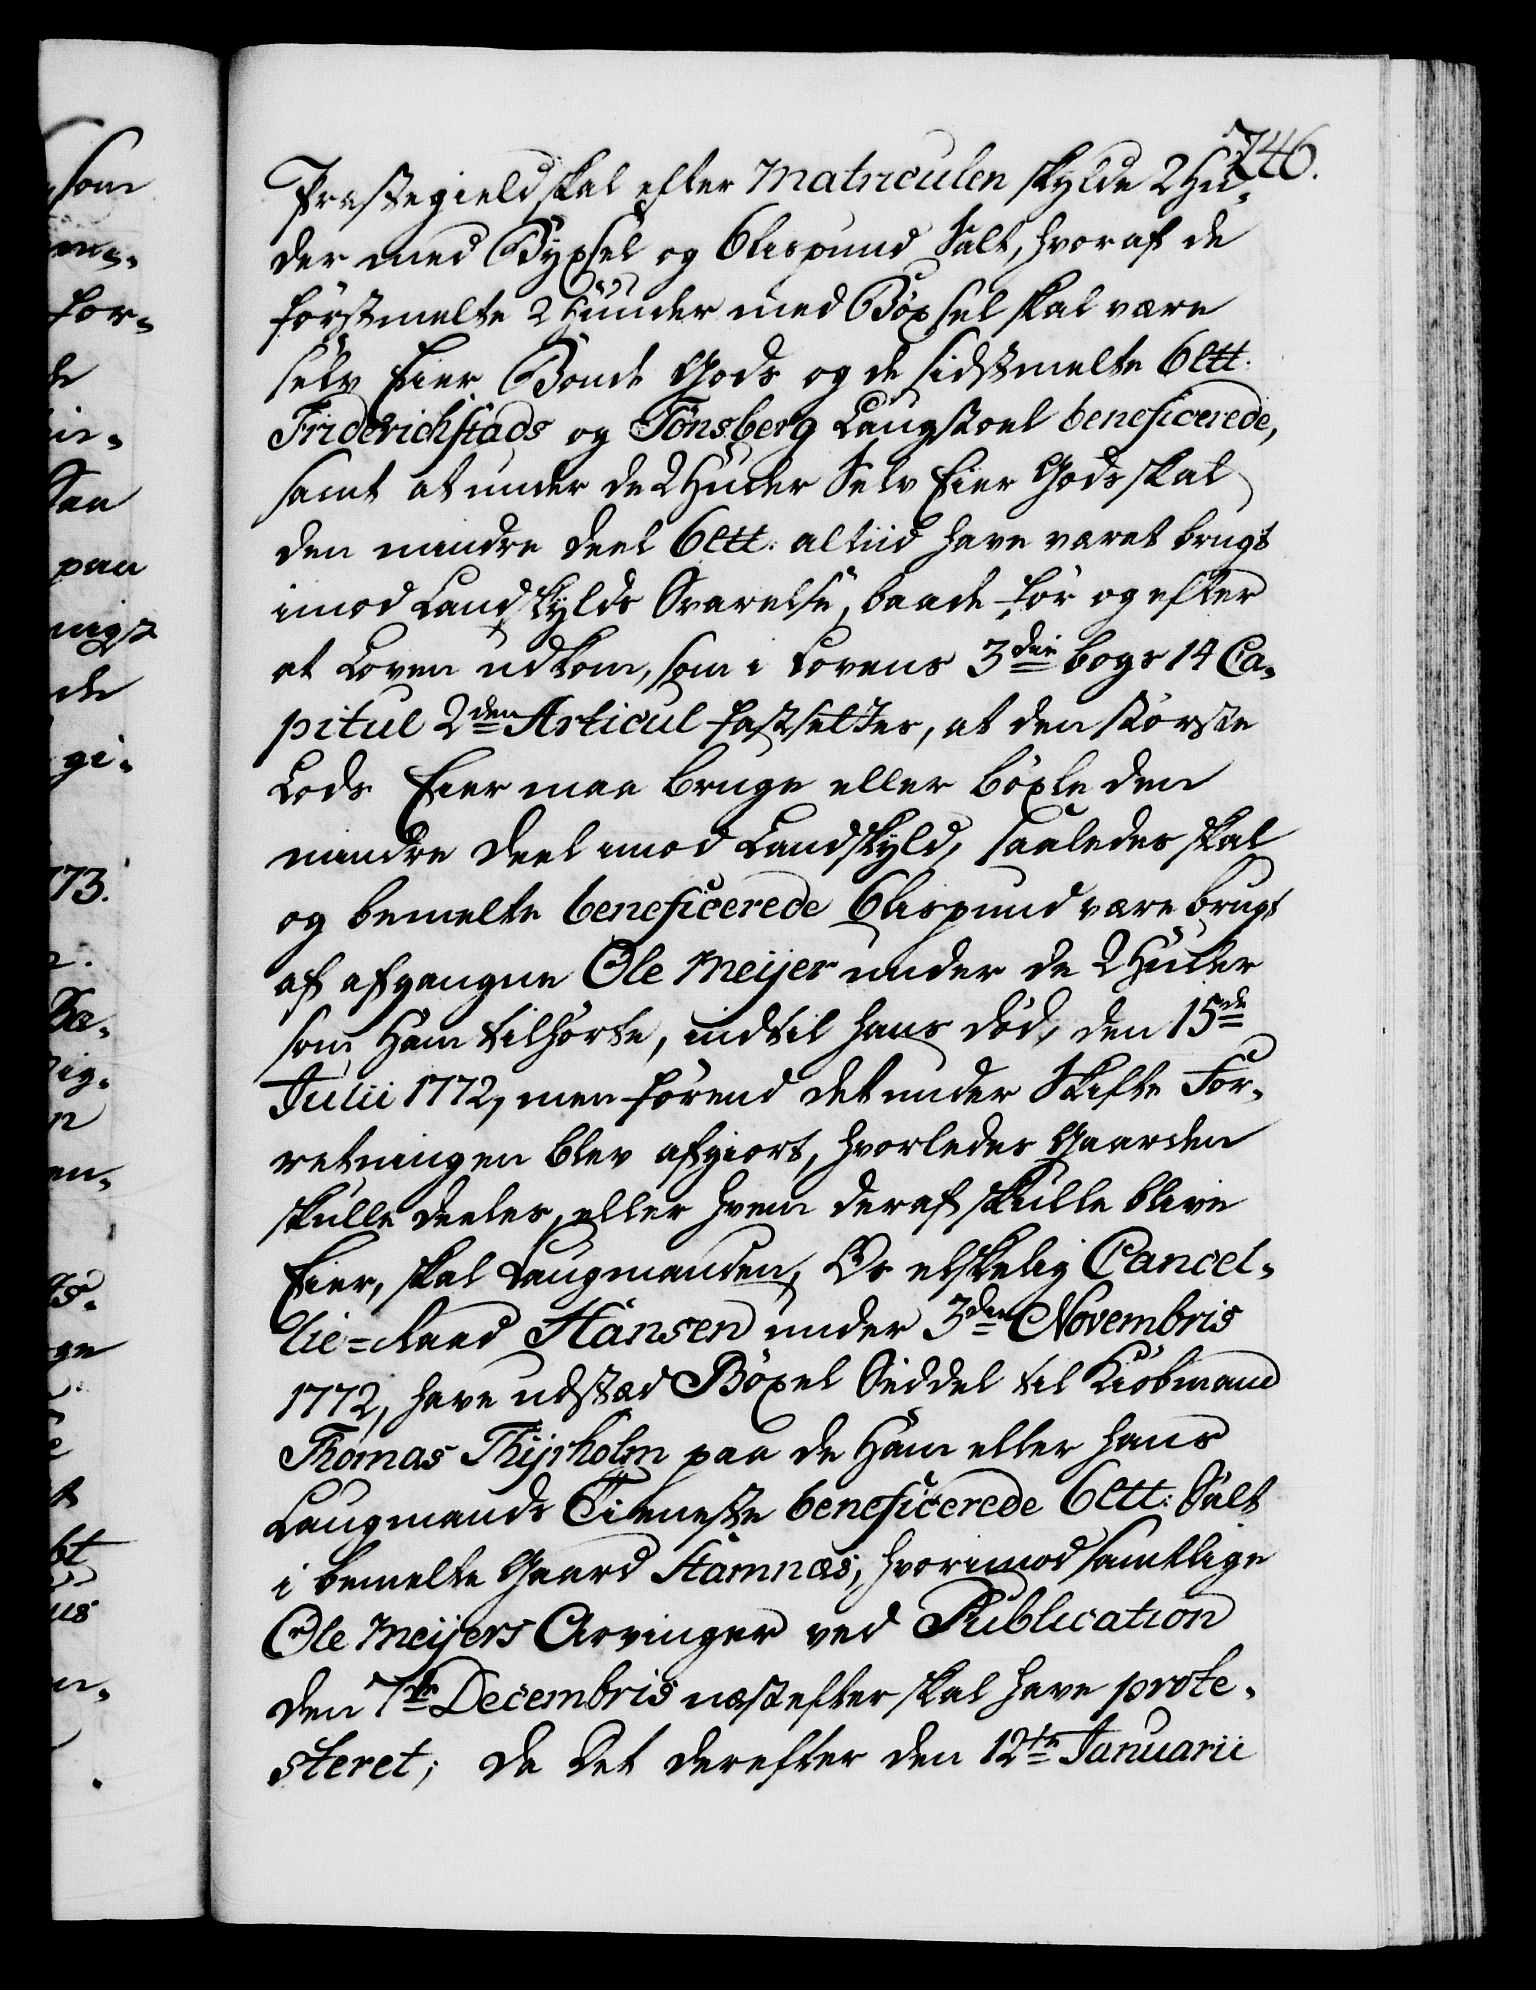 746.
Præstegield skal efter Matriculen skylde 2 Hu-
der med Bÿxsel og 6 Lispund Salt, hvoraf de
förstmelte 2 Huuder med Böxsel skal være
selv Eier Bonde Gods og de sidstmelte 6 Ltt:
Friderichstads og Tönsberg Laugstoel beneficerede,
samt at under de 2 Huder Selv Eier Gods skal
den mindre deel 6 Ltt: altiid have været brugt
imod Landskylds Svarelse, baade för og efter
at Loven udkom, som i Lovens 3die bogs 14 Ca-
pitul 2den Articul fastsettes, at den störste
Lods Eier maa bruge eller böxle den
mindre deel imod Landskyld, saaledes skal
og bemelte beneficerede 6 Lispund være brugt
af afgangne Ole Meijer under de 2 Huder
som Ham tilhörte, indtil hans död, den 15de
Julii 1772, men förend det under Skifte For-
retningen blev afgiort, hvorledes Gaarden
skulle deeles, eller hvem deraf skulle blive
Eier, skal Laugmanden, Os elskelig Cancel-
lie-Raad Hansen under 3den Novembris
1772, have udstæd Böxel Seddel til Kiöbmand
Thomas Thijrholm paa de Ham eller hans
Laugmands Tieneste beneficerede 6 Ltt: Salt
i bemelte Gaard Hamnæs, hvorimod samtlige
Ole Meijers Arvinger ved Publication
den 7de Decembris næstefter skal have prote-
steret; da det derefter den 12te Januarii